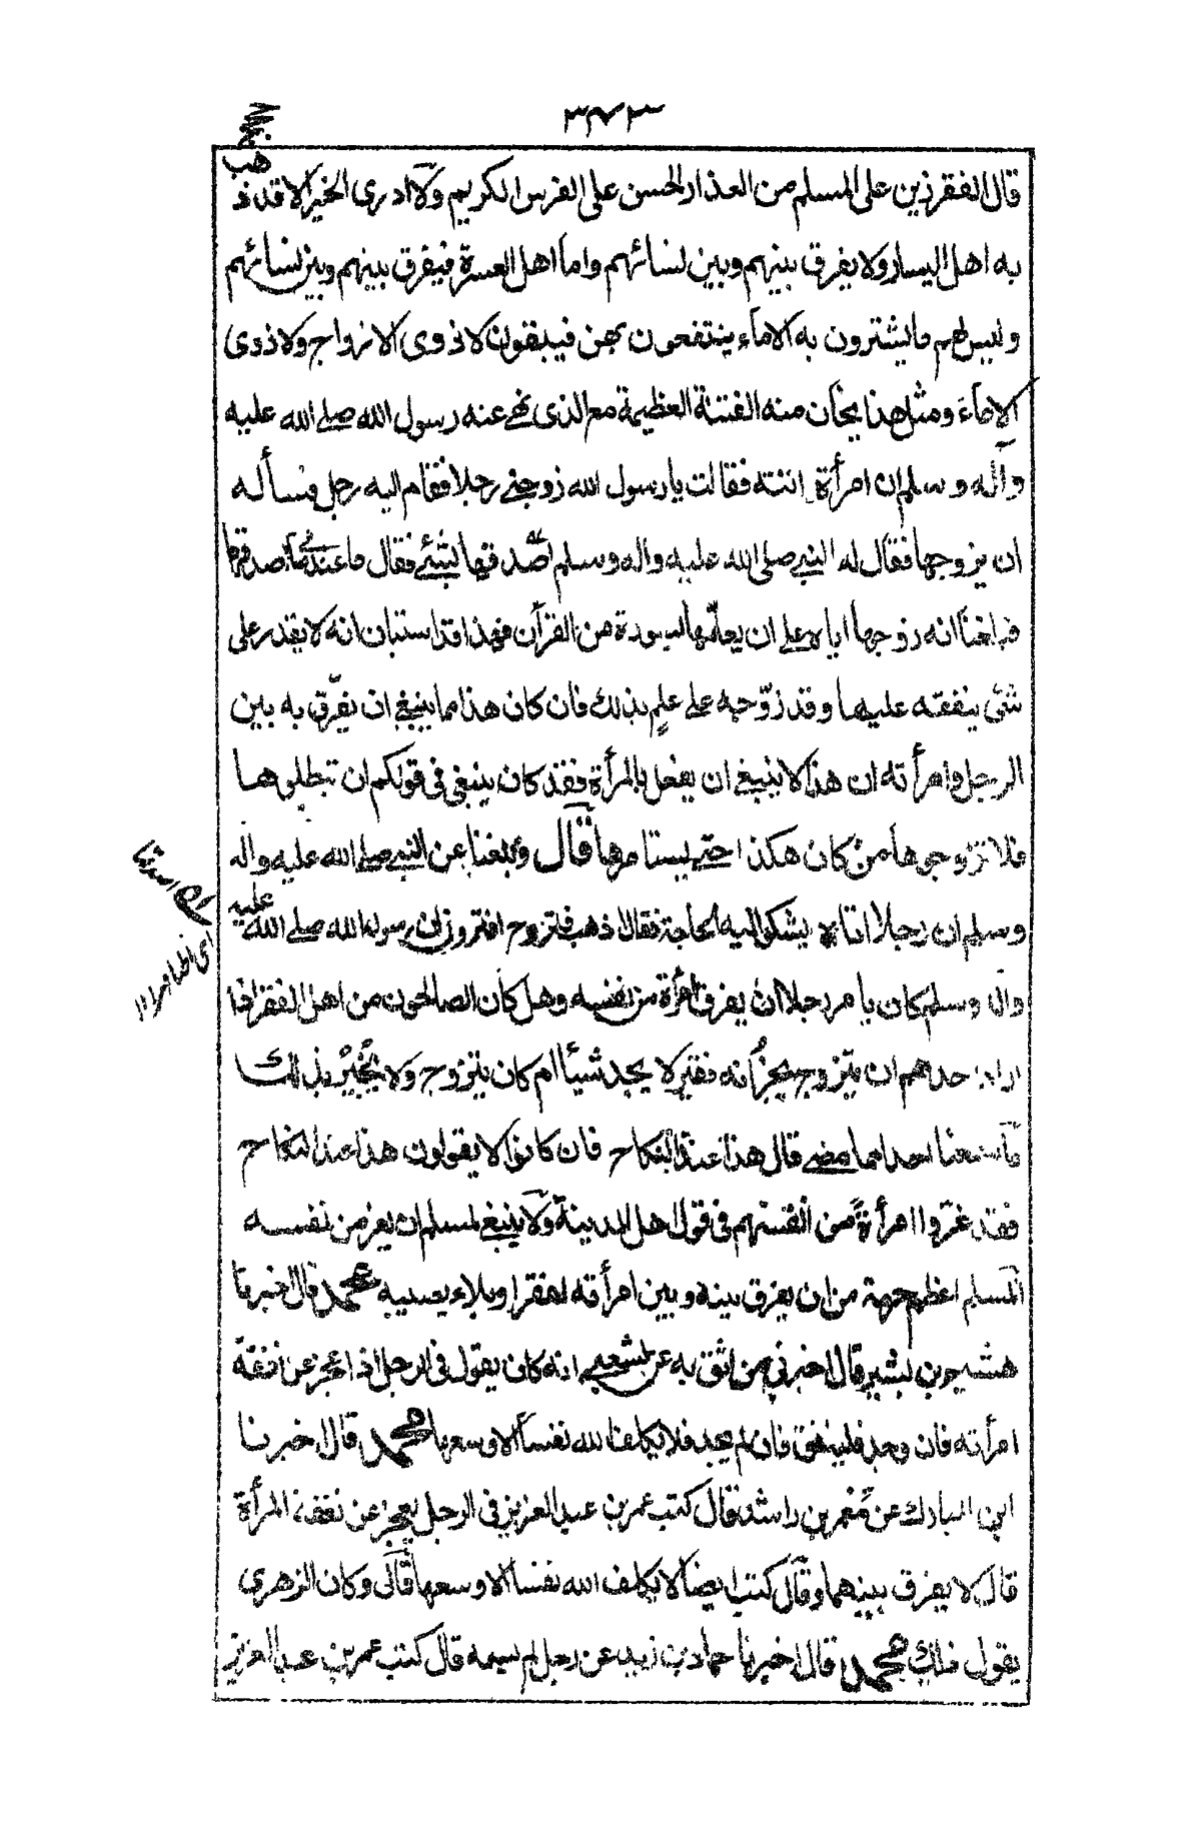 ٣٧٣
حجج
قال الفقر زين على المسلم من العذار الحسن على الفرس الكريم ولا ادرى الخير الا قد ذهب
به اهل اليسار ولا يفرق بينهم وبين نسائهم واما اهل العسرة فيفرق بينهم وبين نسائهم
وليس لهم ما يشترون به الاماء ينتفعون بهن فيبقون لا ذوى الازواج ولا ذوى
الاماء ومثل هذا يخاف منه الفتنة العظيمة مع الذى نهى عنه رسول الله صلى الله عليه
وآله وسلم ان امرأة اتته فقالت يا رسول الله زوجنى رجلا فقام اليه رجل فسأله
ان يزوجها فقال له النبى صلى الله عليه وآله وسلم اصدقها بشئ فقال ما عندى ما اصدقها
فبلغنا انه زوجها اياه على ان يعلمها سورة من القرآن فهذا قد استبان انه لا يقدر على
شئ ينفقه عليها وقد زوّجه على علم بذلك فان كان هذا مما ينبغى ان يفرّق به بين
الرجل وامرأته ان هذا لا ينبغى ان يفعل بالمرأة فقد كان ينبغى فى قولكم ان تبطلوها
فلا تزوجوها من كان هكذا حتى يستامرها قال وبلغنا عن النبى صلى الله عليه وآله
وسلم ان رجلا اتاه يشكو اليه الحاجة فقال اذهب فتزوج افترون ان رسول الله صلى الله عليه
وآله وسلم كان يامر رجلا ان يغر امرأة من نفسه وهل كان الصالحون من اهل الفقر اذا
اراد احدهم ان يتزوج يخبر انه فقير لا يجد شيئا ام كان يتزوج ولا يخبر بذلك
ما سمعنا احدا مما مضى قال هذا عند النكاح فان كانوا لا يقولون هذا عند النكاح
فقد غرّوا امرأة من انفسهم فى قول اهل المدينة ولا ينبغى لمسلم ان يغر من نفسه
المسلم اعظم جهة من ان يفرق بينه وبين امرأته لفقر او بلاء يصيبه محمد قال اخبرنا
هشيم بن بشير قال اخبرنى من اثق به عن الشعبى انه كان يقول فى الرجل اذا عجز عن نفقة
امرأته فان وجد فلينفق فان لم يجد فلا يكلف الله نفسا الا وسعها محمد قال اخبرنا
ابن المبارك عن معمر بن راشد قال كتب عمر بن عبد العزيز فى الرجل يعجز عن نفقة المرأة
قال لا يفرق بينهما وقال كتب ايضا لا يكلف الله نفسا الا وسعها قال وكان الزهرى
يقول ذلك محمد قال اخبرنا حماد بن زيد عن رجل لم يسمه قال كتب عمر بن عبد العزيز